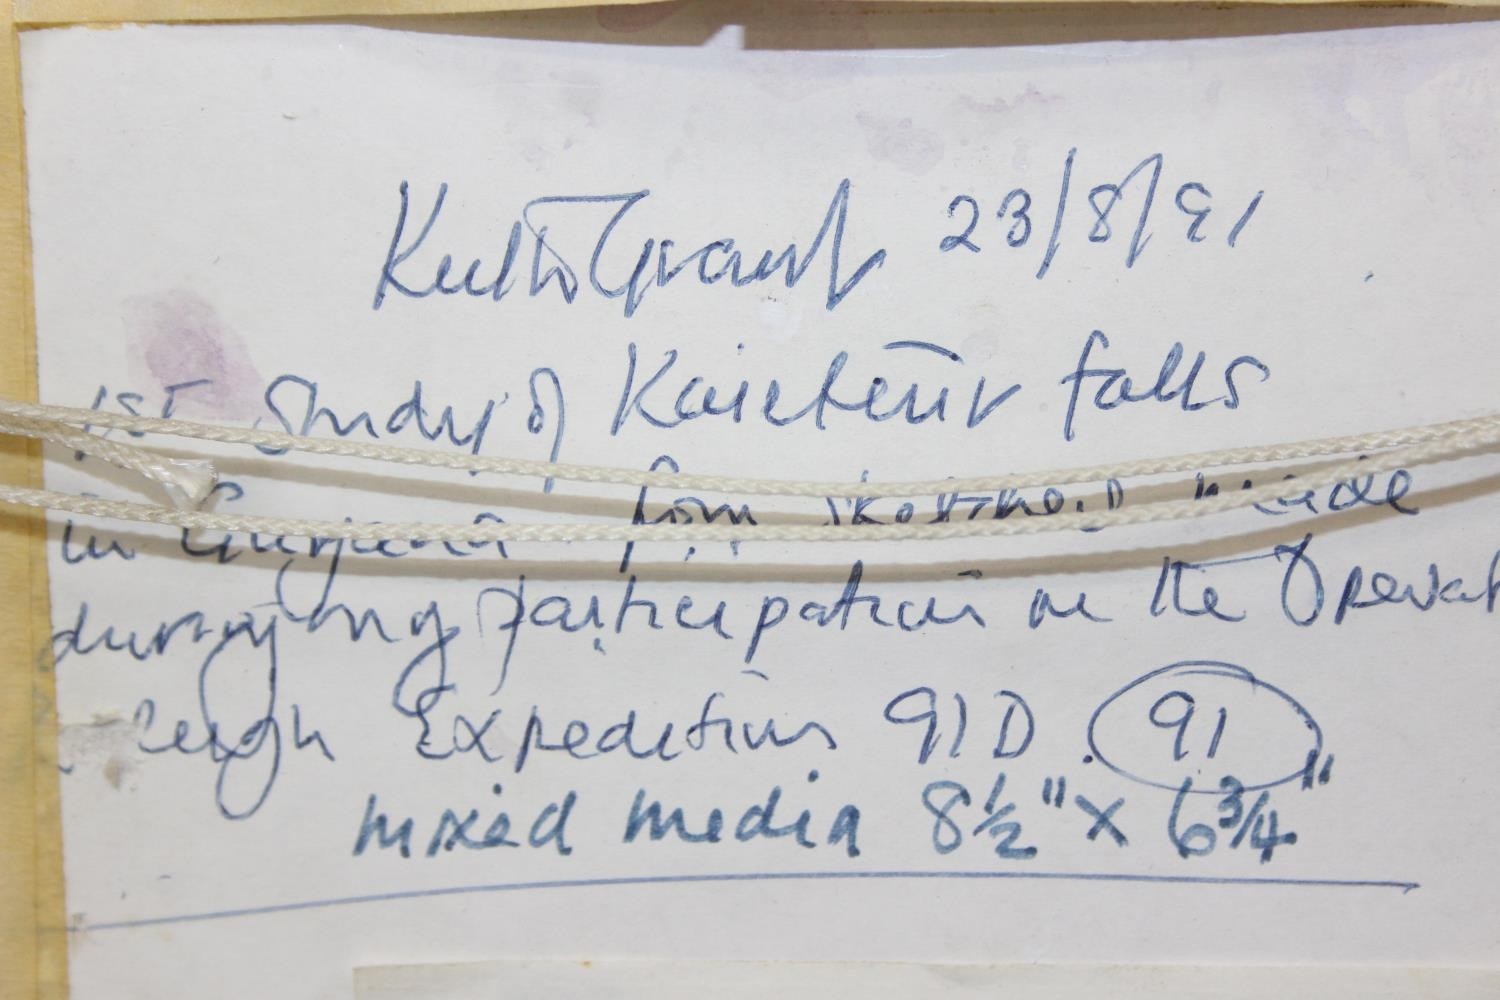 Keith Grant 23/8/91
1st Study of Kaieteur falls
in Guyana from sketches made
during my participation in the Operat
Leigh Expedition 91D. 91
mixed media 8½" x 6¾"